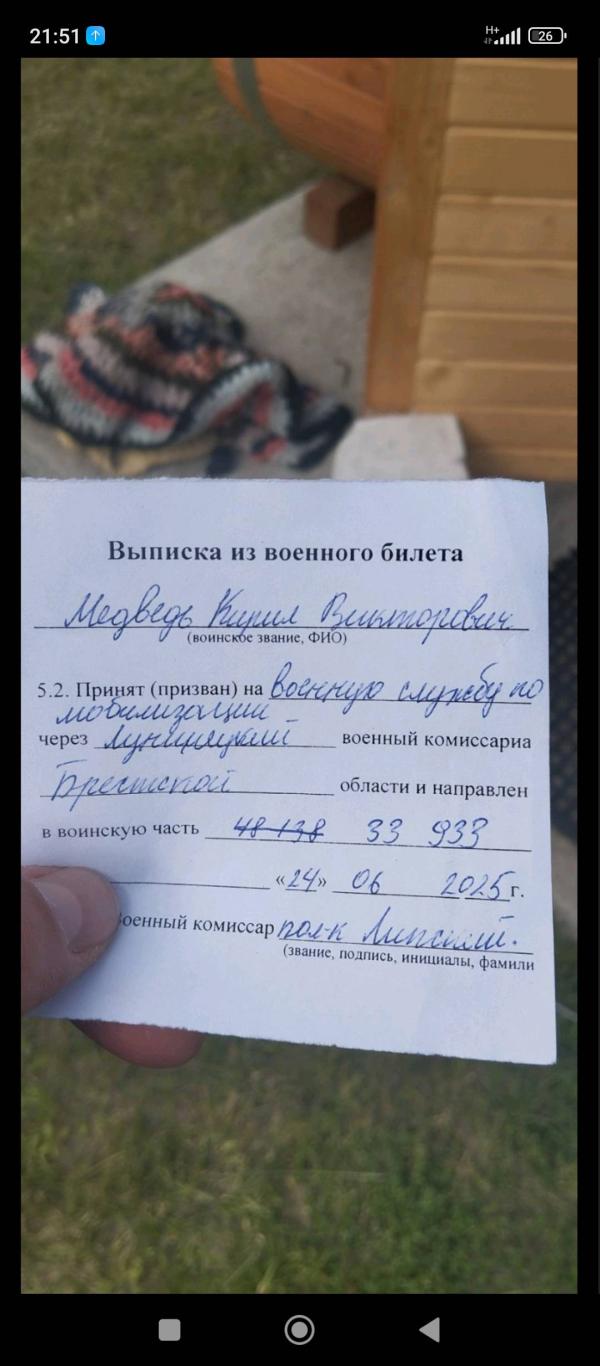 21:51
H+
26
Выписка из военного билета
Медведь Кирил Викторович
(воинское звание, ФИО)
5.2. Принят (призван) на военную службу по
мобилизации
через Лунинецкий военный комиссариа
Брестской области и направлен
в воинскую часть 48 138 33 933
«24» 06 2025 г.
Военный комиссар пол-к Липский.
(звание, подпись, инициалы, фамили